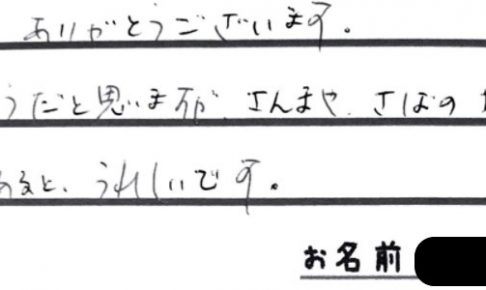 ありがとうございます。
うだと思いますが、さんまや、さばの
あると、うれしいです。
お名前